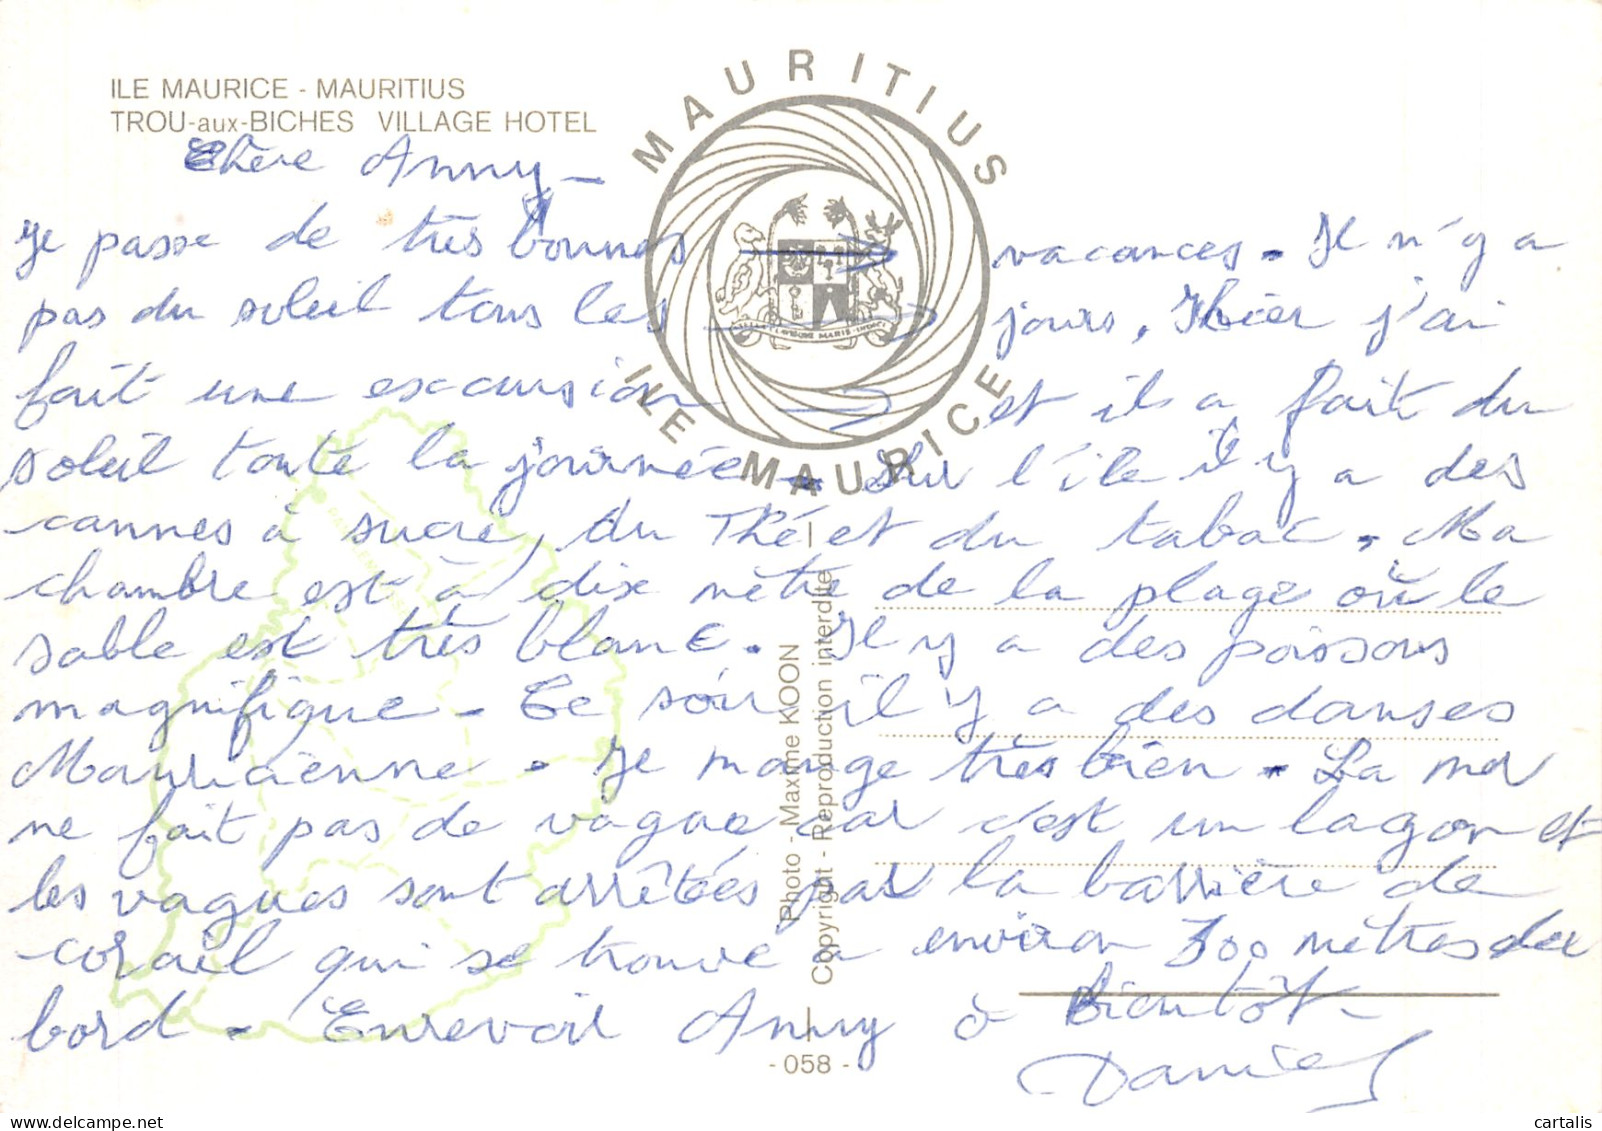 ILE MAURICE - MAURITIUS
TROU-aux-BICHES VILLAGE HOTEL
MAURITIUS
ILE MAURICE
Chère Anny -
Je passe de très bonnes vacances. Il n'y a
pas du soleil tous les jours. Hier j'ai
fait une excursion et il a fait du
soleil toute la journée. Sur l'île il y a des
cannes à sucre, du Thé et du tabac. Ma
chambre est à dix mètre de la plage où le
sable est très blanc. Il y a des poissons
magnifique - Ce soir il y a des danses
Mauricienne. Je mange très bien. La mer
ne fait pas de vague car c'est un lagon et
les vagues sont arrêtées par la barrière de
corail qui se trouve a environ 300 mètres du
bord. Enrevoir Anny à Bientôt -
Daniel
Photo - Maxime KOON
Copyright - Reproduction interdite
- 058 -
cartalis